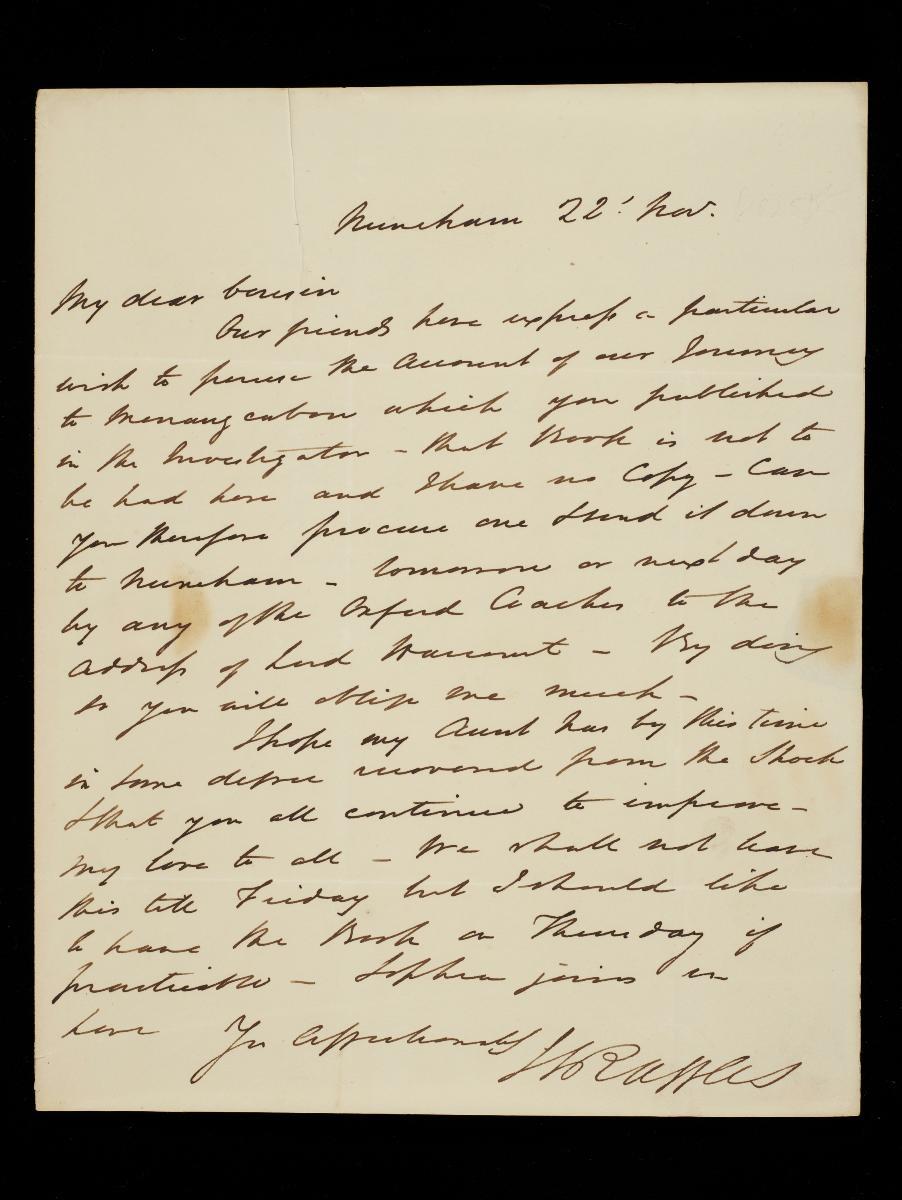 Nuneham 22' Nov.
My dear Cousin
Our friends have express a particular
wish to peruse the Account of our Journey
to Menangcabow which you published
in the Investigator - that Book is not to
be had here and I have no Copy - Can
you therefore procure one & send it down
to Nuneham - tomorrow or next day
by any of the Oxford Coaches to the
address of Lord Harcourt - By doing
so you will oblige me much -
I hope my Aunt has by this time
in some degree recovered from the Shock
& that you all continue to improve -
My love to all - We shall not leave
this till Friday but I should like
to have the Book on Thursday if
practicable - Sophia joins in
love Yrs affectionately
T S Raffles